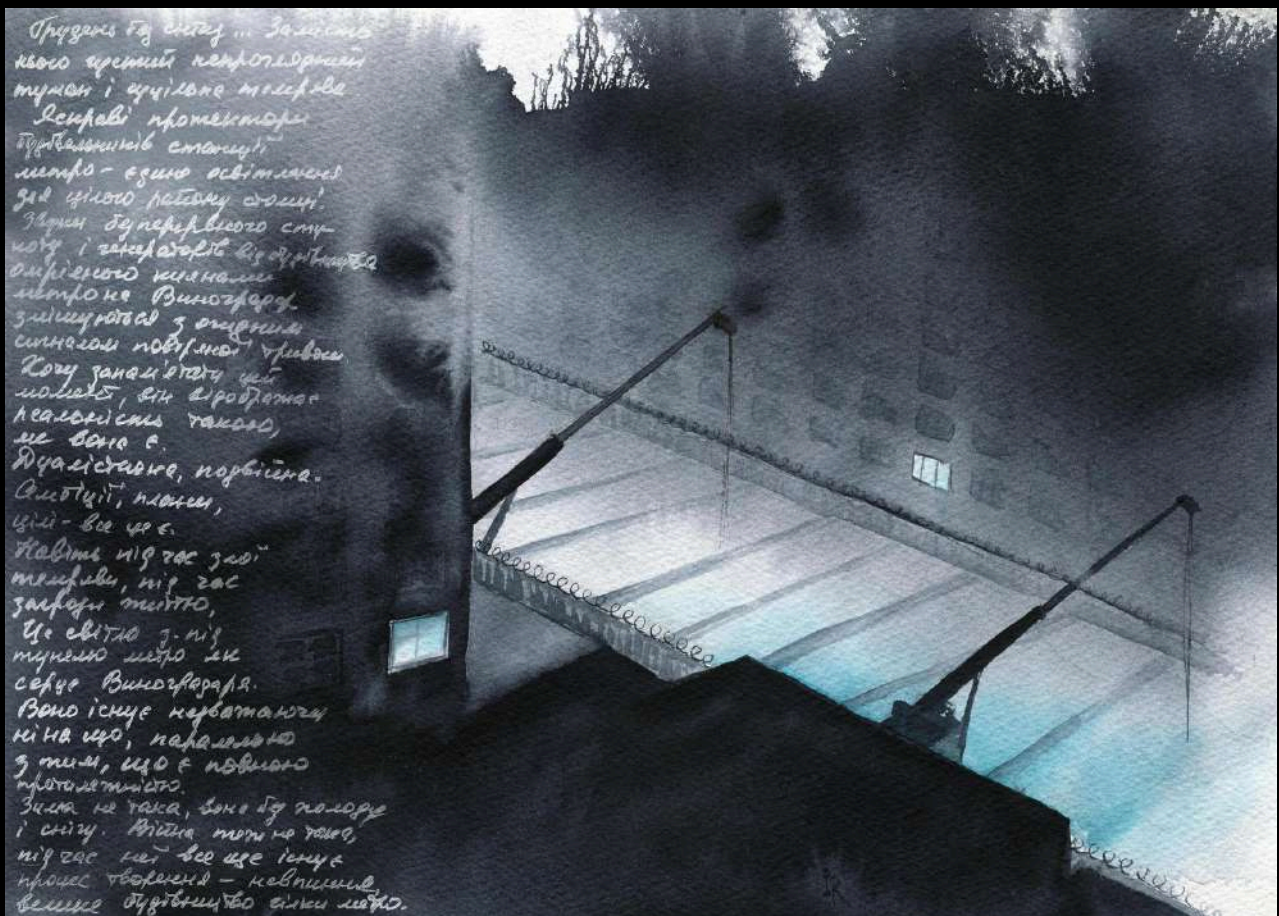 Грудень без снігу... Замість
нього густий непроглядний
туман і суцільна темрява
Яскраві прожектори
будівельників станції
метро - єдине освітлення
для цілого району столиці.
Звуки безперервного сту-
коту і генераторів від будівництва
омріяного киянами
метро на Виноградар
змішуються з огидним
сигналом повітряної тривоги.
Хочу запам'ятати цей
момент, він відображає
реальність такою,
як вона є.
Дуалістична, подвійна.
Амбіції, плани,
цілі - все це є.
Навіть під час злої
темряви, під час
загрози життю,
Це світло з-під
тунелю метро як
серце Виноградаря.
Воно існує незважаючи
ні на що, паралельно
з тим, що є повною
протилежністю.
Зима не така, вона без холоду
і снігу. Війна теж не така,
під час неї все ще існує
процес творення - невпинне,
велике будівництво гілки метро.